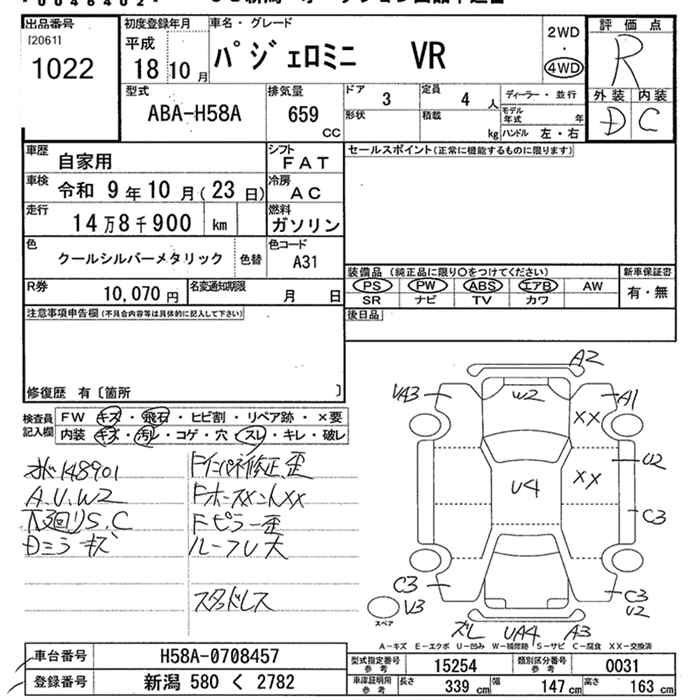 出品番号
[2061]
1022
初度登録年月
平成
18 10 月
車名・グレード
パジェロミニ VR
2WD
・
4WD
評価点
R
外装 内装
D C
型式
ABA-H58A
排気量
659
CC
ドア
3
定員
4 人
ディーラー・並行
形状
積載
kg
モデル年式 年
ハンドル 左・右
車歴
自家用
シフト
FAT
車検
令和 9 年 10 月( 23 日)
冷房
AC
走行
14万8千900 km
燃料
ガソリン
色
クールシルバーメタリック
色替
色コード
A31
R券
10,070 円
名変通知期限
月 日
セールスポイント(正常に機能するものに限ります)
装備品 (純正品に限り○をつけてください)
新車保証書
PS PW ABS エアB AW
有・無
SR ナビ TV カワ
後日品
注意事項申告欄(不具合内容等は具体的に記入して下さい)
修復歴 有〔箇所 〕
検査員記入欄
FW キズ・飛石・ヒビ割・リペア跡・×要
内装 キズ・汚レ・コゲ・穴・スレ・キレ・破レ
148901
A.U.W2
下廻りS.C
Dミラーキズ
Fインパネ修正歪
FホースメントXX
Fピラー歪
ルーフU大
スタッドレス
A2
VA3
W2
A1
XX
U2
XX
U4
C3
C3
V3
スペア
C3
U2
ズレ UA4 A3
A-キズ E-エクボ U-凹み W-補修跡 S-サビ C-腐食 XX-交換済
車台番号
H58A-0708457
登録番号
新潟 580 く 2782
型式指定番号
参考
15254
類別区分番号
参考
0031
車庫証明用
参考
長さ 339 cm
幅 147 cm
高さ 163 cm